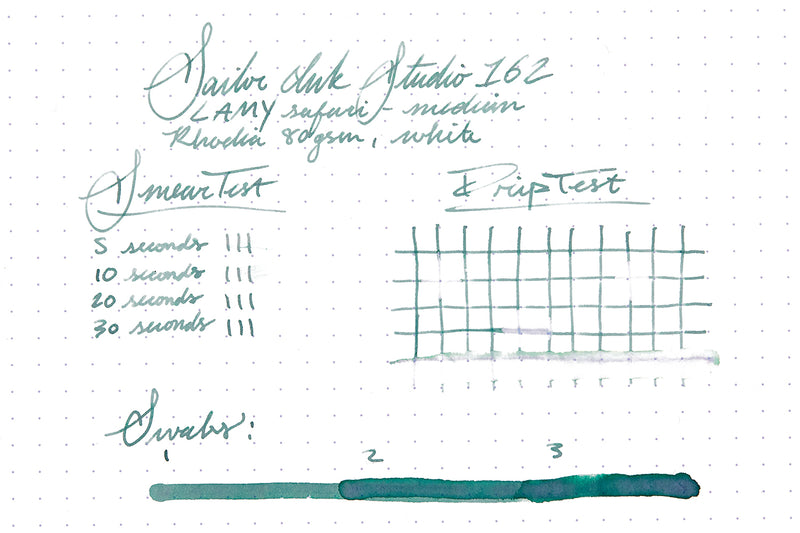 Sailor Ink Studio 162
LAMY safari - medium
Rhodia 80gsm, white
Smear Test
Drip Test
5 seconds
10 seconds
20 seconds
30 seconds
Swabs:
1 2 3